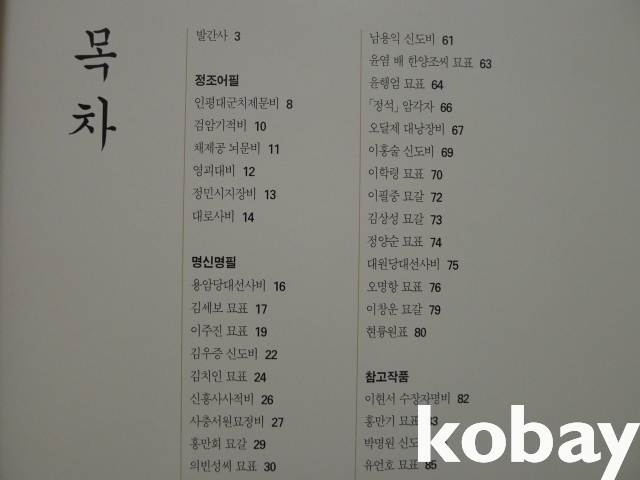 목차
발간사 3
정조어필
인평대군치제문비 8
검암기적비 10
채제공 뇌문비 11
영괴대비 12
정민시지장비 13
대로사비 14
명신명필
용암당대선사비 16
김세보 묘표 17
이주진 묘표 19
김우증 신도비 22
김치인 묘표 24
신흥사사적비 26
사충서원묘정비 27
홍만회 묘갈 29
의빈성씨 묘표 30
남용익 신도비 61
윤염 배 한양조씨 묘표 63
윤행엄 묘표 64
「정석」 암각자 66
오달제 대낭장비 67
이홍술 신도비 69
이학령 묘표 70
이필중 묘갈 72
김상성 묘갈 73
정양순 묘표 74
대원당대선사비 75
오명항 묘표 76
이창운 묘갈 79
현륭원표 80
참고작품
이현서 수장자명비 82
홍만기 묘표
박명원 신도
유언호 묘표 85
kobay